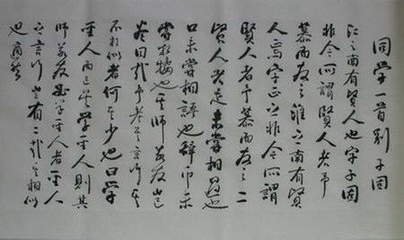 同学一首别子固
江之南有賢人也字子固
非今所謂賢人者予
慕而友之淮之南有賢
人焉字正之非今所謂
賢人者予慕而友之二
賢人者足未嘗相過也
口未嘗相語也辭币未
嘗相接也其師若友豈
盡同哉予考其言行其
不相似者何其少也曰學
聖人而已矣學聖人則其
師若友必學聖人者聖人
之言行豈有二哉其相似
也適然